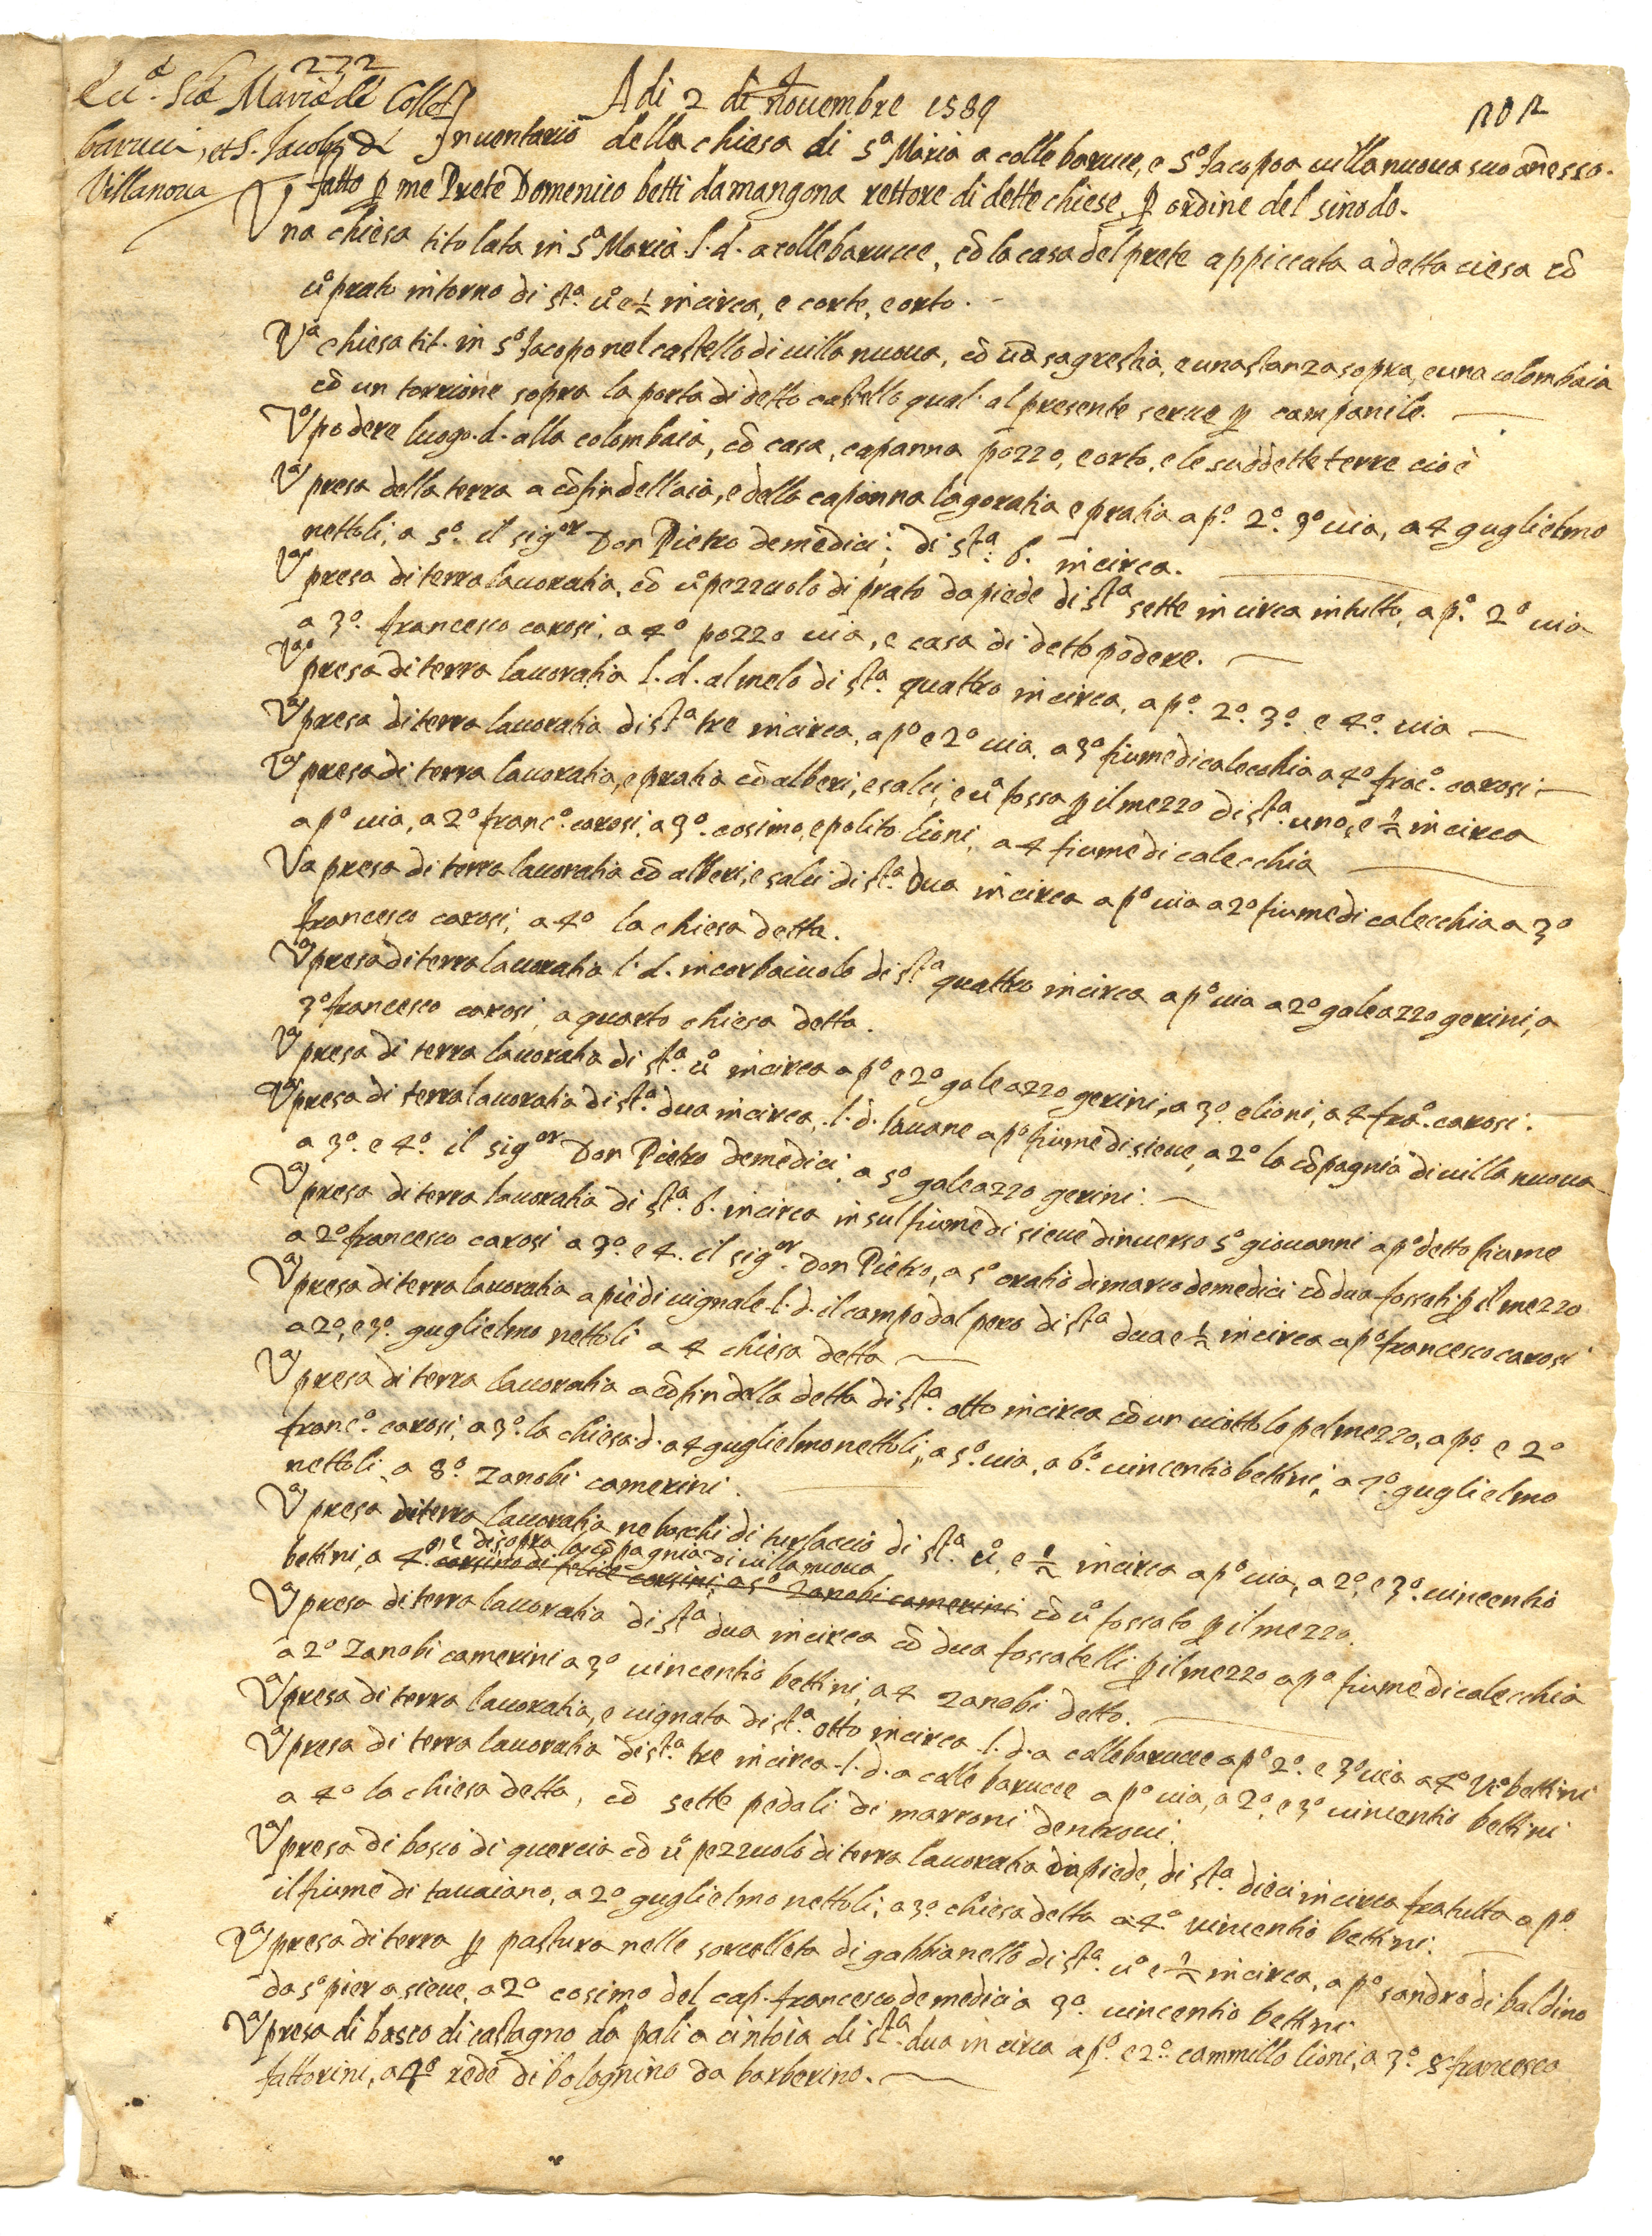 272
Ecc.ª Stæ Mariæ de Colle
barucci, et S. Jacobi di
Villanova
Adi 2 di novembre 1589
202
Inventario della chiesa di S.ª Maria a colle barucce, e S.º Jacopo a villa nuova suo anesso.
fatto p me Prete Domenico betti da mangona rettore di dette chiese, p ordine del sinodo.
Una chiesa titolata in S.ª Maria l. d. a colle barucce, cō la casa del prete appiccata a detta ciesa cō
ū prato intorno di st.ª ū e ½ in circa, e corte, e orto.
Vª chiesa tit. in S.º Jacopo nel castello di villa nuova, cō uā sagrestia, e una stanza sopra, e una colombaia
cō un torrione sopra la porta di detto castello qual' al presente serue p campanile.
Vº podere luogo. d. alla colombaia, cō casa, capanna pozzo, e orto, e le suddette terre cioè
Vª presa della terra a cōfin dell'aia, e della capanna lagoratia e pratia a pº. 2º. 3º via, a 4 guglielmo
nettoli, a 5º. il sigor Don Pietro de medici; di st.ª 6. in circa.
Vª presa di terra lauoratia, cō uº pezzuolo di prato da piede di st.ª sette in circa in tutto, a pº. 2º via
a 3º. francesco carosi, a 4º pozzo via, e casa di detto podere.
Vª presa di terra lauoratia l. d. al melo di st.ª quattro in circa, a pº. 2º. 3º. e 4º. uia
Vª presa di terra lauoratia di st.ª tre in circa, a pº e 2º uia, a 3º fiume di calecchia a 4º fracº. carosi
Vª presa di terra lauoratia, e pratia cō alberi, e salci, e uª fossa p il mezzo di st.ª uno, e ½ in circa
a pº uia, a 2º francº. carosi, a 3º. cosimo, e polito lioni, a 4 fiume di calecchia
Va presa di terra lauoratia cō alberi, e salci di st.ª dua in circa a pº uia a 2º fiume di calecchia a 3º
francesco carosi, a 4º la chiesa detta.
Vª presa di terra lauoratia l. d. in corbaiuolo di st.ª quattro in circa a pº uia a 2º galeazzo gerini, a
3º francesco carosi, a quarto chiesa detta.
Vª presa di terra lauoratia di st.ª uº in circa a pº e 2º galeazzo gerini, a 3º. e lioni, a 4 fraº. carosi.
Vª presa di terra lauoratia di st.ª dua in circa, l. d. lauane a pº fiume di sieue, a 2º la cōpagnia di uilla nuoua
a 3º. e 4º. il sigor Don Pietro de medici, a 5º galeazzo gerini.
Vª presa di terra lauoratia di st.ª 6. in circa in sul fiume di sieue dinuerso Sº giouanni a pº detto fiume
a 2º francesco carosi a 3º. e 4. il sigor. Don Pietro, a 5º oratio di marco de medici cō dua fossati p il mezzo
Vª presa di terra lauoratia a piè di uignale l. d. il campo dal pero di st.ª dua e ½ in circa a pº francesco carosi
a 2º, e 3º. guglielmo nettoli a 4 chiesa detta
Vª presa di terra lauoratia a cōfin della detta di st.ª otto in circa cō un uiottolo pel mezzo, a pº. e 2º
francº. carosi, a 3º. la chiesa d. a 4 guglielmo nettoli, a 5º. uia, a 6º. uincentio bettini, a 7º. guglielmo
nettoli, a 8º. zanobi camerini.
Vª presa di terra lauoratia ne boschi di turlaccio di st.ª uº, e ½ in circa a pº uia, a 2º, e 3º. uincentio
e di sopra la cōpagnia di uilla nuoua
bettini, a 4º corsino di felice corsini, a 5º zanobi camerini cō uº fossato p il mezzo.
Vª presa di terra lauoratia di st.ª dua in circa cō dua fossatelli p il mezzo a pº fiume di calecchia
a 2º zanobi camerini a 3º uincentio bettini, a 4 zanobi detto.
Vª presa di terra lauoratia, e uignata di st.ª otto in circa l. d. a collebarucce a pº 2º. e 3º uia a 4º Vº bettini
Vª presa di terra lauoratia di st.ª tre in circa l. d. a colle barucce a pº uia, a 2º, e 3º uincentio bettini
a 4º la chiesa detta, cō sette pedali di marroni dentroui.
Vª presa di bosco di quercia cō ū pezzuolo di terra lauoratia da piede, di st.ª dieci in circa fra tutto a pº
il fiume di tauaiano, a 2º guglielmo nettoli, a 3º. chiesa detta a 4º. uincentio bettini.
Vª presa di terra p pastura nelle sorcelleta di gabbianello di st.ª uº e ½ in circa, a pº sandro di baldino
da Sº pier a sieue, a 2º cosimo del cap. francesco de medici a 3º. uincentio bettini
Vª presa di bosco di castagno da pali a cintoia di st.ª dua in circa a pº. e 2º. cammillo lioni, a 3º. sr francesco
fattorini, a 4º rede di bolognino da barberino.